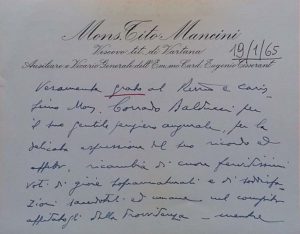 Mons. Tito Mancini
Vescovo tit. di Vartana
Ausiliare e Vicario Generale dell'Em.mo Card. Eugenio Tisserant
19/1/65
Veramente grato al Rev.mo e caris-
simo Mons. Corrado Balducci per
il suo gentile pensiero augurale, per la
delicata espressione del suo ricordo ed
affetto, ricambia di cuore fervidissimi
voti di gioie soprannaturali e di soddisfa-
zioni sacerdotali ed umane nel compito
affidatogli dalla Provvidenza – mentre